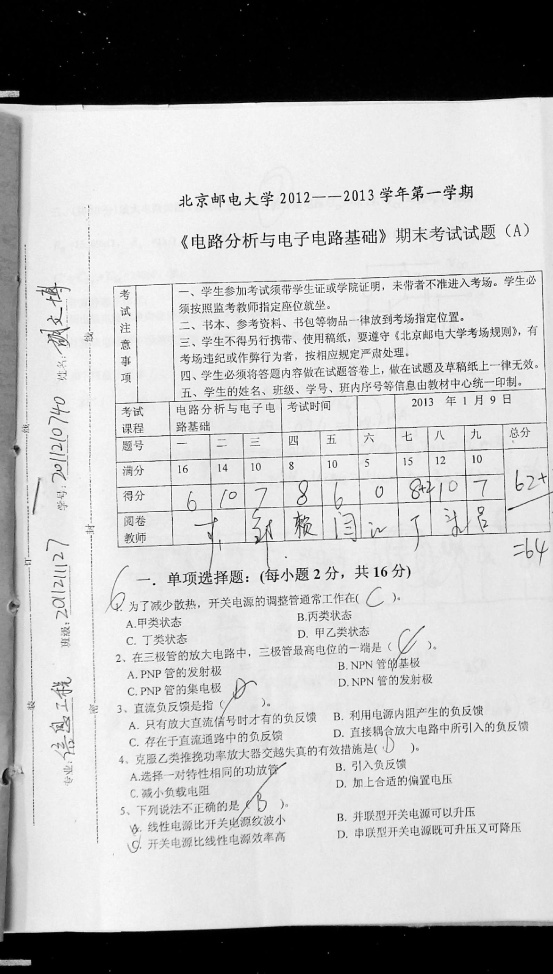 北京邮电大学2012——2013学年第一学期
《电路分析与电子电路基础》期末考试试题（A）
考试注意事项
一、学生参加考试须带学生证或学院证明，未带者不准进入考场。学生必
须按照监考教师指定座位就坐。
二、书本、参考资料、书包等物品一律放到考场指定位置。
三、学生不得另行携带、使用稿纸，要遵守《北京邮电大学考场规则》，有
考场违纪或作弊行为者，按相应规定严肃处理。
四、学生必须将答题内容做在试题答卷上，做在试题及草稿纸上一律无效。
五、学生的姓名、班级、学号、班内序号等信息由教材中心统一印制。
考试课程 电路分析与电子电路基础 考试时间 2013 年 1 月 9 日
题号 一 二 三 四 五 六 七 八 九 总分
满分 16 14 10 8 10 5 15 12 10
得分 6 10 7 8 6 0 8+2 10 7 62+
阅卷教师
=64
6
一．单项选择题：(每小题 2 分，共 16 分)
1、为了减少散热，开关电源的调整管通常工作在( C )。
A.甲类状态 B.丙类状态
C. 丁类状态 D. 甲乙类状态
2、在三极管的放大电路中，三极管最高电位的一端是（ ）。
A. PNP 管的发射极 B. NPN 管的基极
C. PNP 管的集电极 D. NPN 管的发射极
3、直流负反馈是指（ ）。
A. 只有放大直流信号时才有的负反馈 B. 利用电源内阻产生的负反馈
C. 存在于直流通路中的负反馈 D. 直接耦合放大电路中所引入的负反馈
4、克服乙类推挽功率放大器交越失真的有效措施是( D )。
A.选择一对特性相同的功放管 B. 引入负反馈
C.减小负载电阻 D. 加上合适的偏置电压
5、下列说法不正确的是（ B ）。
A. 线性电源比开关电源纹波小 B. 并联型开关电源可以升压
C. 开关电源比线性电源效率高 D. 串联型开关电源既可升压又可降压
专业: 信息工程 班级: 2012211127 学号: 2012210740 姓名:
装 订 线
密 封 线